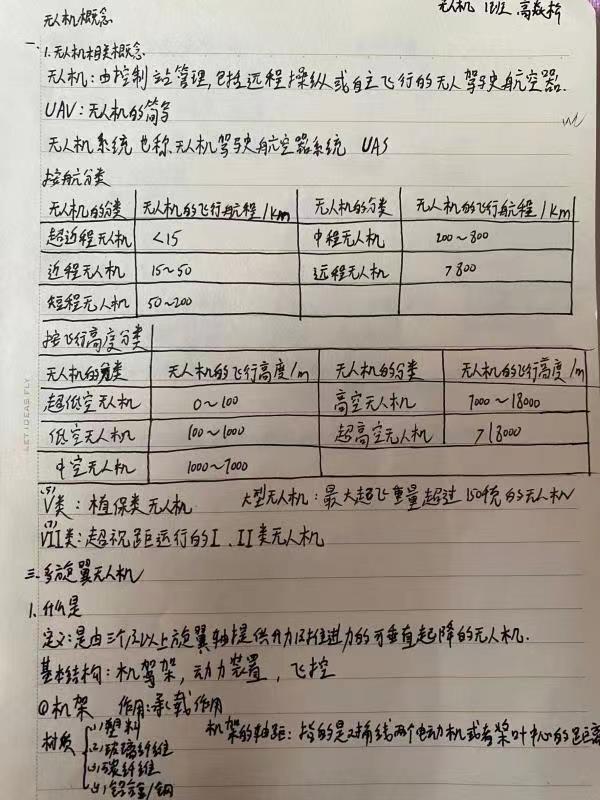 无人机 1班 高
无人机概念
一、
1.无人机相关概念
无人机：由控制站管理，包括远程操纵或自主飞行的无人驾驶航空器.
UAV：无人机的简写
无人机系统 也称无人机驾驶航空器系统 UAS
按航分类
无人机的分类 无人机的飞行航程/km 无人机的分类 无人机的飞行航程/km
超近程无人机 <15 中程无人机 200~800
近程无人机 15~50 远程无人机 >800
短程无人机 50~200
按飞行高度分类
无人机的分类 无人机的飞行高度/m 无人机的分类 无人机的飞行高度/m
超低空无人机 0~100 高空无人机 7000~18000
低空无人机 100~1000 超高空无人机 >18000
中空无人机 1000~7000
(5)
V类：植保类无人机 大型无人机：最大起飞重量超过150千克的无人机
(7)
VII类：超视距运行的I、II类无人机
三、多旋翼无人机
1.什么是
定义：是由三个及以上旋翼轴提供升力和推进力的可垂直起降的无人机.
基本结构：机架，动力装置，飞控
①机架 作用：承载作用
材质 (1)塑料 机架的轴距：指的是对角线两个电动机或者桨叶中心的距离
(2)玻璃纤维
(3)碳纤维
(4)铝合金/钢
LET IDEAS FLY